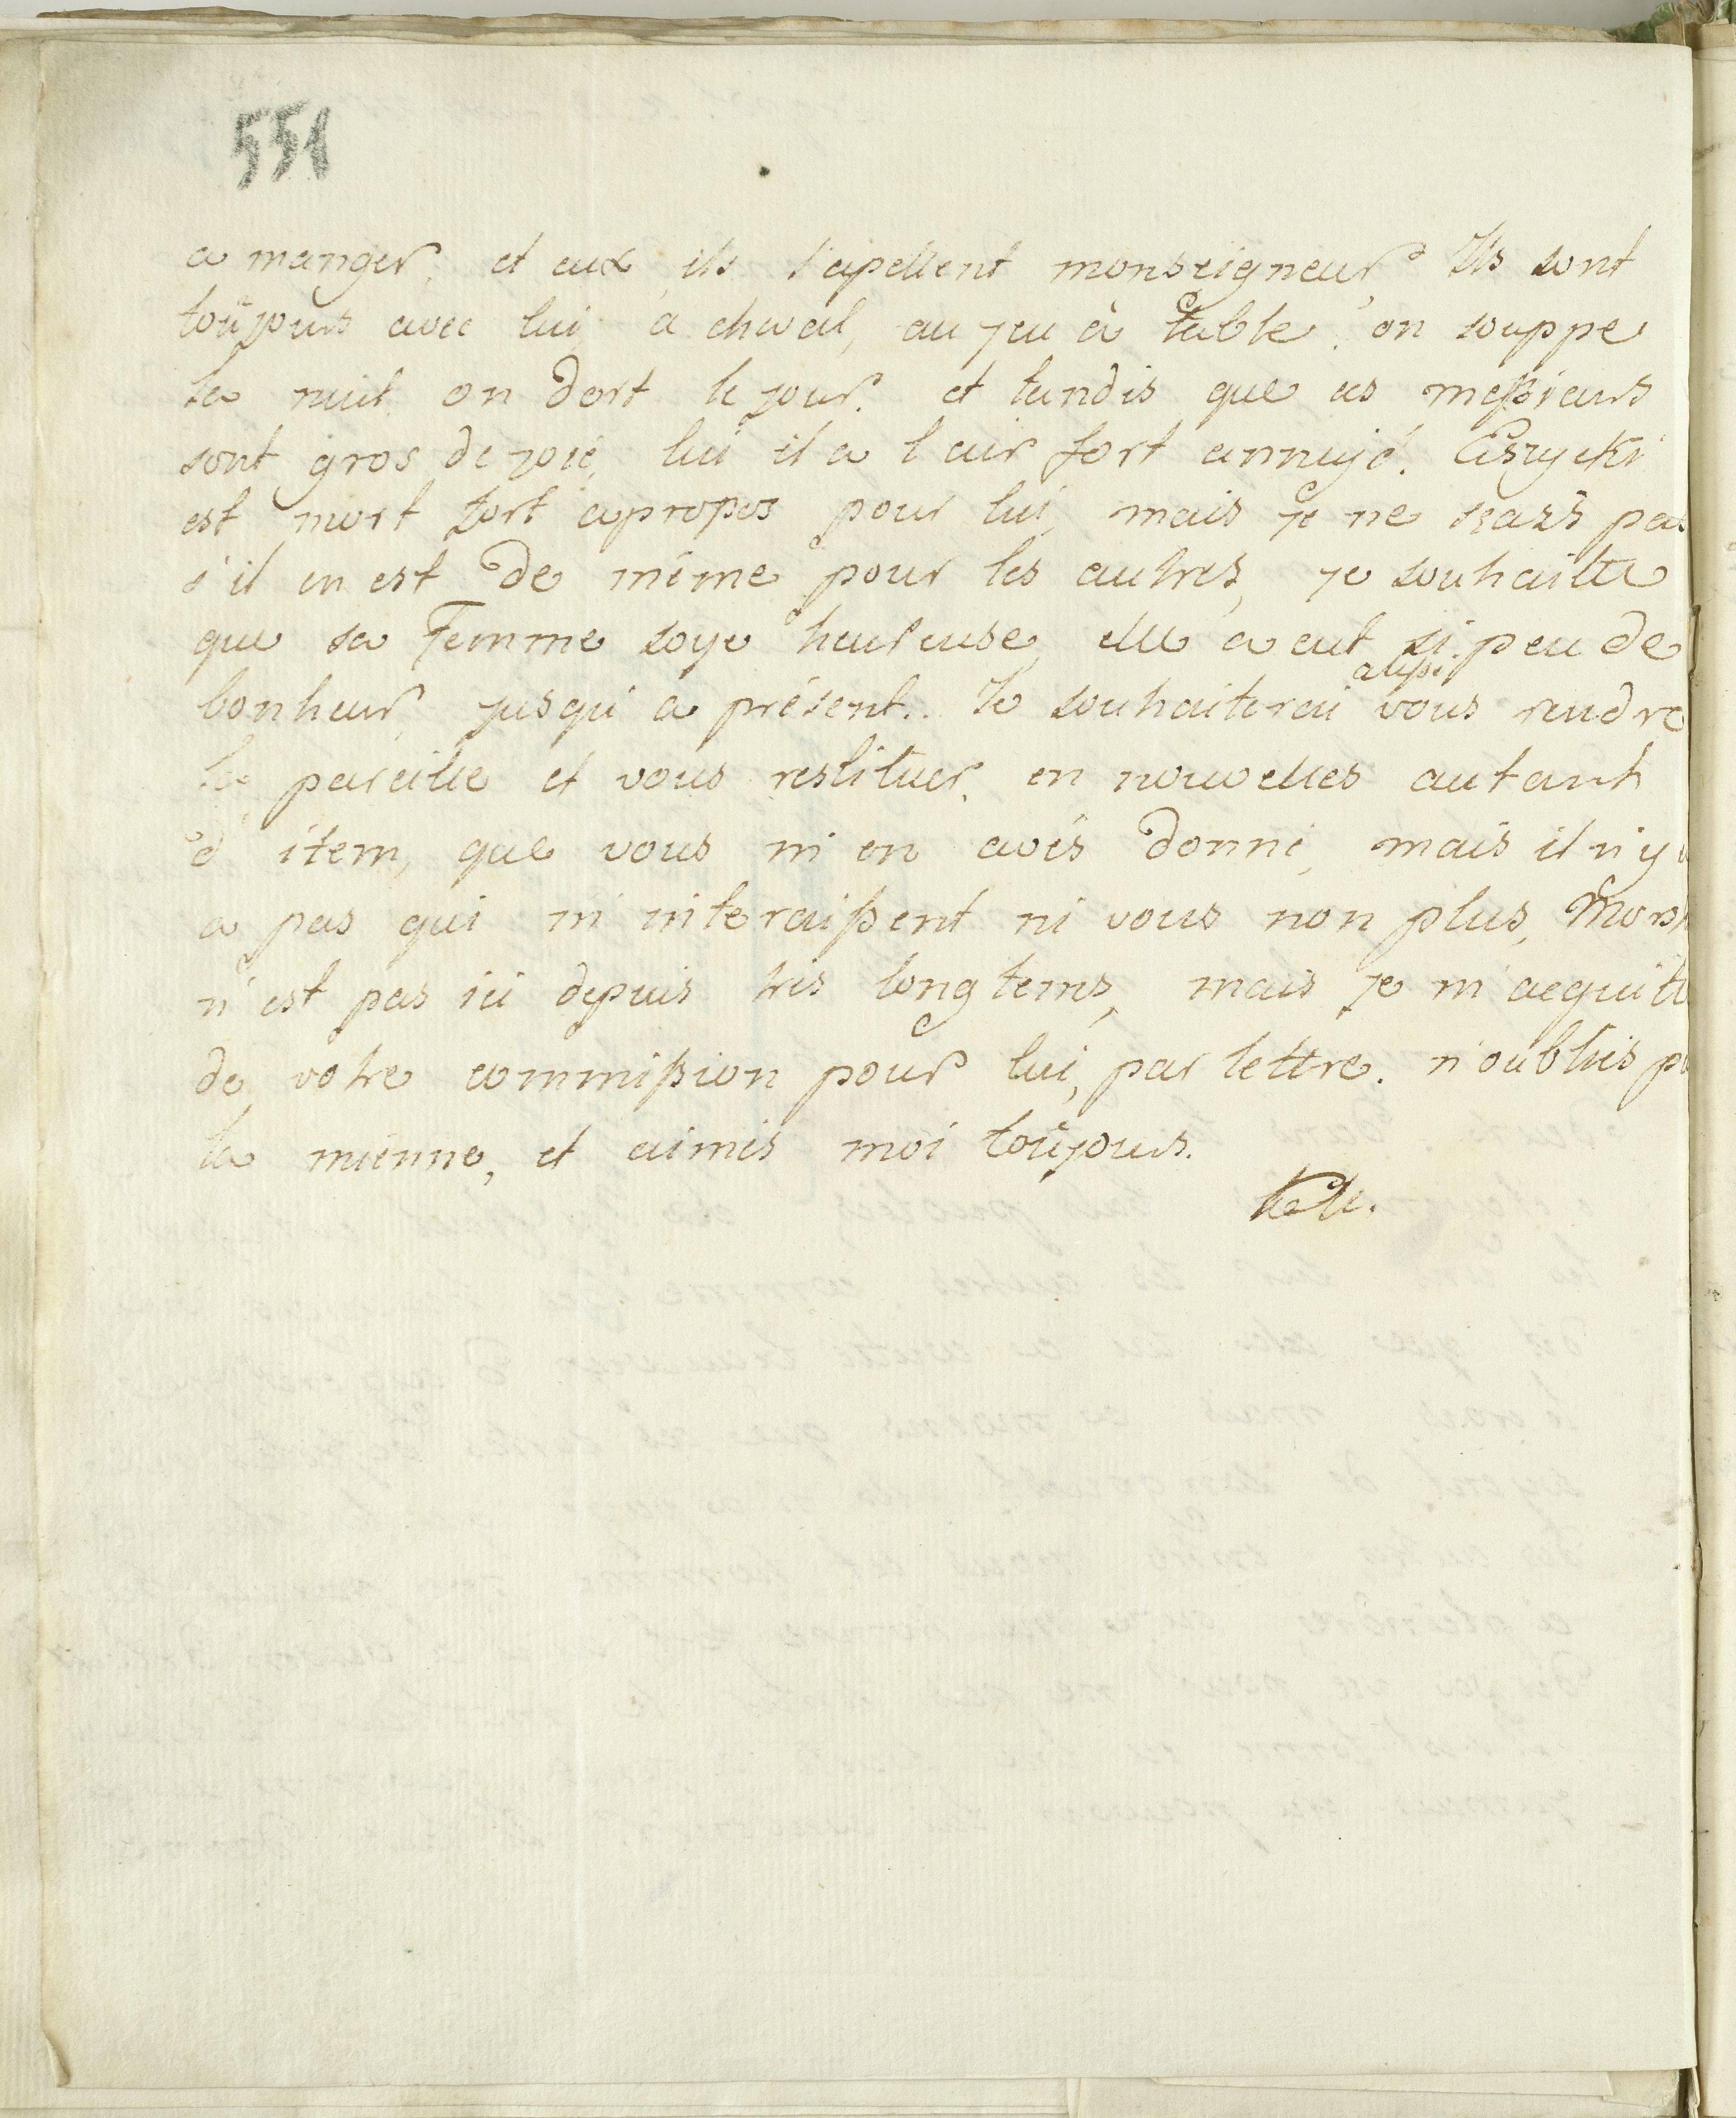 551
a manger. et eux, ils l'apellent monseigneur, Ils sont
toûjours avec lui, a cheval, au jeu à table. on souppe
la nuit on dort le jour. et tandis que ces meßieurs
sont gros de joie, lui il a l'air fort ennuyé.
est mort fort apropos pour lui, mais je ne scais pas
s'il en est de même pour les autres, je souhaitte
que sa Femme soye heureuse, elle a eut si peu de
bonheur, jusqu'a présent.. Je souhaiterai außi vous rendre
la pareille et vous restituer, en nouvelles autant
d'item, que vous m'en avés donné, mais il n'y
a pas qui m'interaißent ni vous non plus,
n'est pas ici depuis tres longtems, mais je m'acquitte
de votre commißion pour lui, par lettre. n'oubliés
la mienne, et aimés moi toûjours.